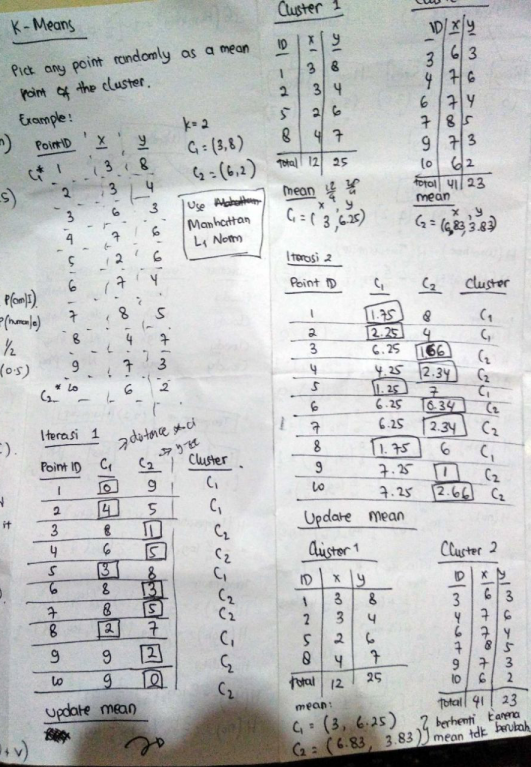 K-Means
Pick any point randomly as a mean
point of the cluster.
Example:
Point ID x y
C₁* 1 3 8
2 3 4
3 6 3
4 7 6
5 2 6
6 7 4
7 8 5
8 4 7
9 7 3
C₂* 10 6 2
k=2
C₁ = (3,8)
C₂ = (6,2)
Use
Manhattan
L₁ Norm
P(am|I)
1/2
(0.5)
Iterasi 1
Point ID C₁ C₂ Cluster
1 0 9 C₁
2 4 5 C₁
3 8 1 C₂
4 6 5 C₂
5 3 8 C₁
6 8 3 C₂
7 8 5 C₂
8 2 7 C₁
9 9 2 C₂
10 9 0 C₂
update mean
Cluster 1
ID x y
1 3 8
2 3 4
5 2 6
8 4 7
Total 12 25
mean
x, y
C₁ = (3, 6.25)
ID x y
3 6 3
4 7 6
6 7 4
7 8 5
9 7 3
10 6 2
Total 41 23
mean
x, y
C₂ = (6,83, 3.83)
Iterasi 2
Point ID C₁ C₂ Cluster
1 1.75 8 C₁
2 2.25 4 C₁
3 6.25 1.66 C₂
4 4.25 2.34 C₂
5 1.25 7 C₁
6 6.25 0.34 C₂
7 6.25 2.34 C₂
8 1.75 6 C₁
9 7.25 1 C₂
10 7.25 2.66 C₂
Update mean
Cluster 1
ID x y
1 3 8
2 3 4
5 2 6
8 4 7
Total 12 25
mean:
C₁ = (3, 6.25)
C₂ = (6.83, 3.83)
Cluster 2
ID x y
3 6 3
4 7 6
6 7 4
7 8 5
9 7 3
10 6 2
Total 41 23
berhenti karena
mean tdk berubah